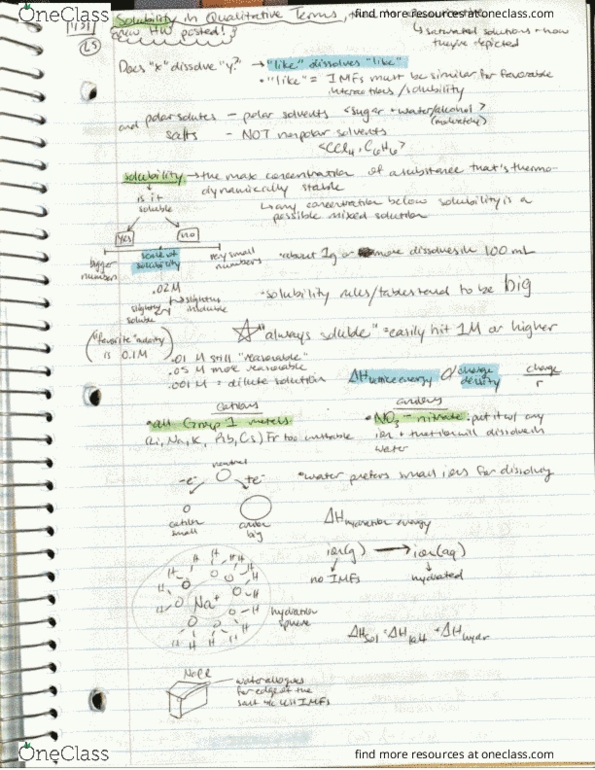 OneClass
find more resources at oneclass.com
Solubility in Qualitative Terms,
new HW posted!
L5
saturated solutions + how
they're depicted
Does "x" dissolve "y?" → "like" dissolves "like"
• "like" = IMFs must be similar for favorable
interactions/solubility
and polar solutes – polar solvents <sugar + water/alcohol>
(moderately)
salts – NOT nonpolar solvents
<CCl4, C6H6>
solubility → the max concentration of a substance that's thermo-
dynamically stable
is it
soluble
↳ any concentration below solubility is a
possible mixed solution
yes
no
bigger
numbers
scale of
solubility
very small
numbers
• about 1g or more dissolves in 100 mL
.02M
slightly
soluble
slightly
insoluble
• solubility rules/tables tend to be big
("favorite" molarity
is 0.1M)
☆ "always soluble" = easily hit 1M or higher
.01 M still "reasonable"
.05 M more reasonable
.001 M = dilute solutions
ΔH lattice energy
charge
density
charge
r
cations
anions
• all Group 1 metals
(Li, Na, K, Rb, Cs) Fr too unstable
• NO3– nitrate. put it w/ any
ion + that ion will dissolve in
water
neutral
-e-
+e-
• water prefers small ions for dissolving
cation
small
anion
big
ΔH hydration energy
ion(g) → ion(aq)
no IMFs
hydrated
Na+
hydration
sphere
ΔHsol = ΔHlatt + ΔHhydr
water
for edge of the
salt
IMFs
OneClass
find more resources at oneclass.com